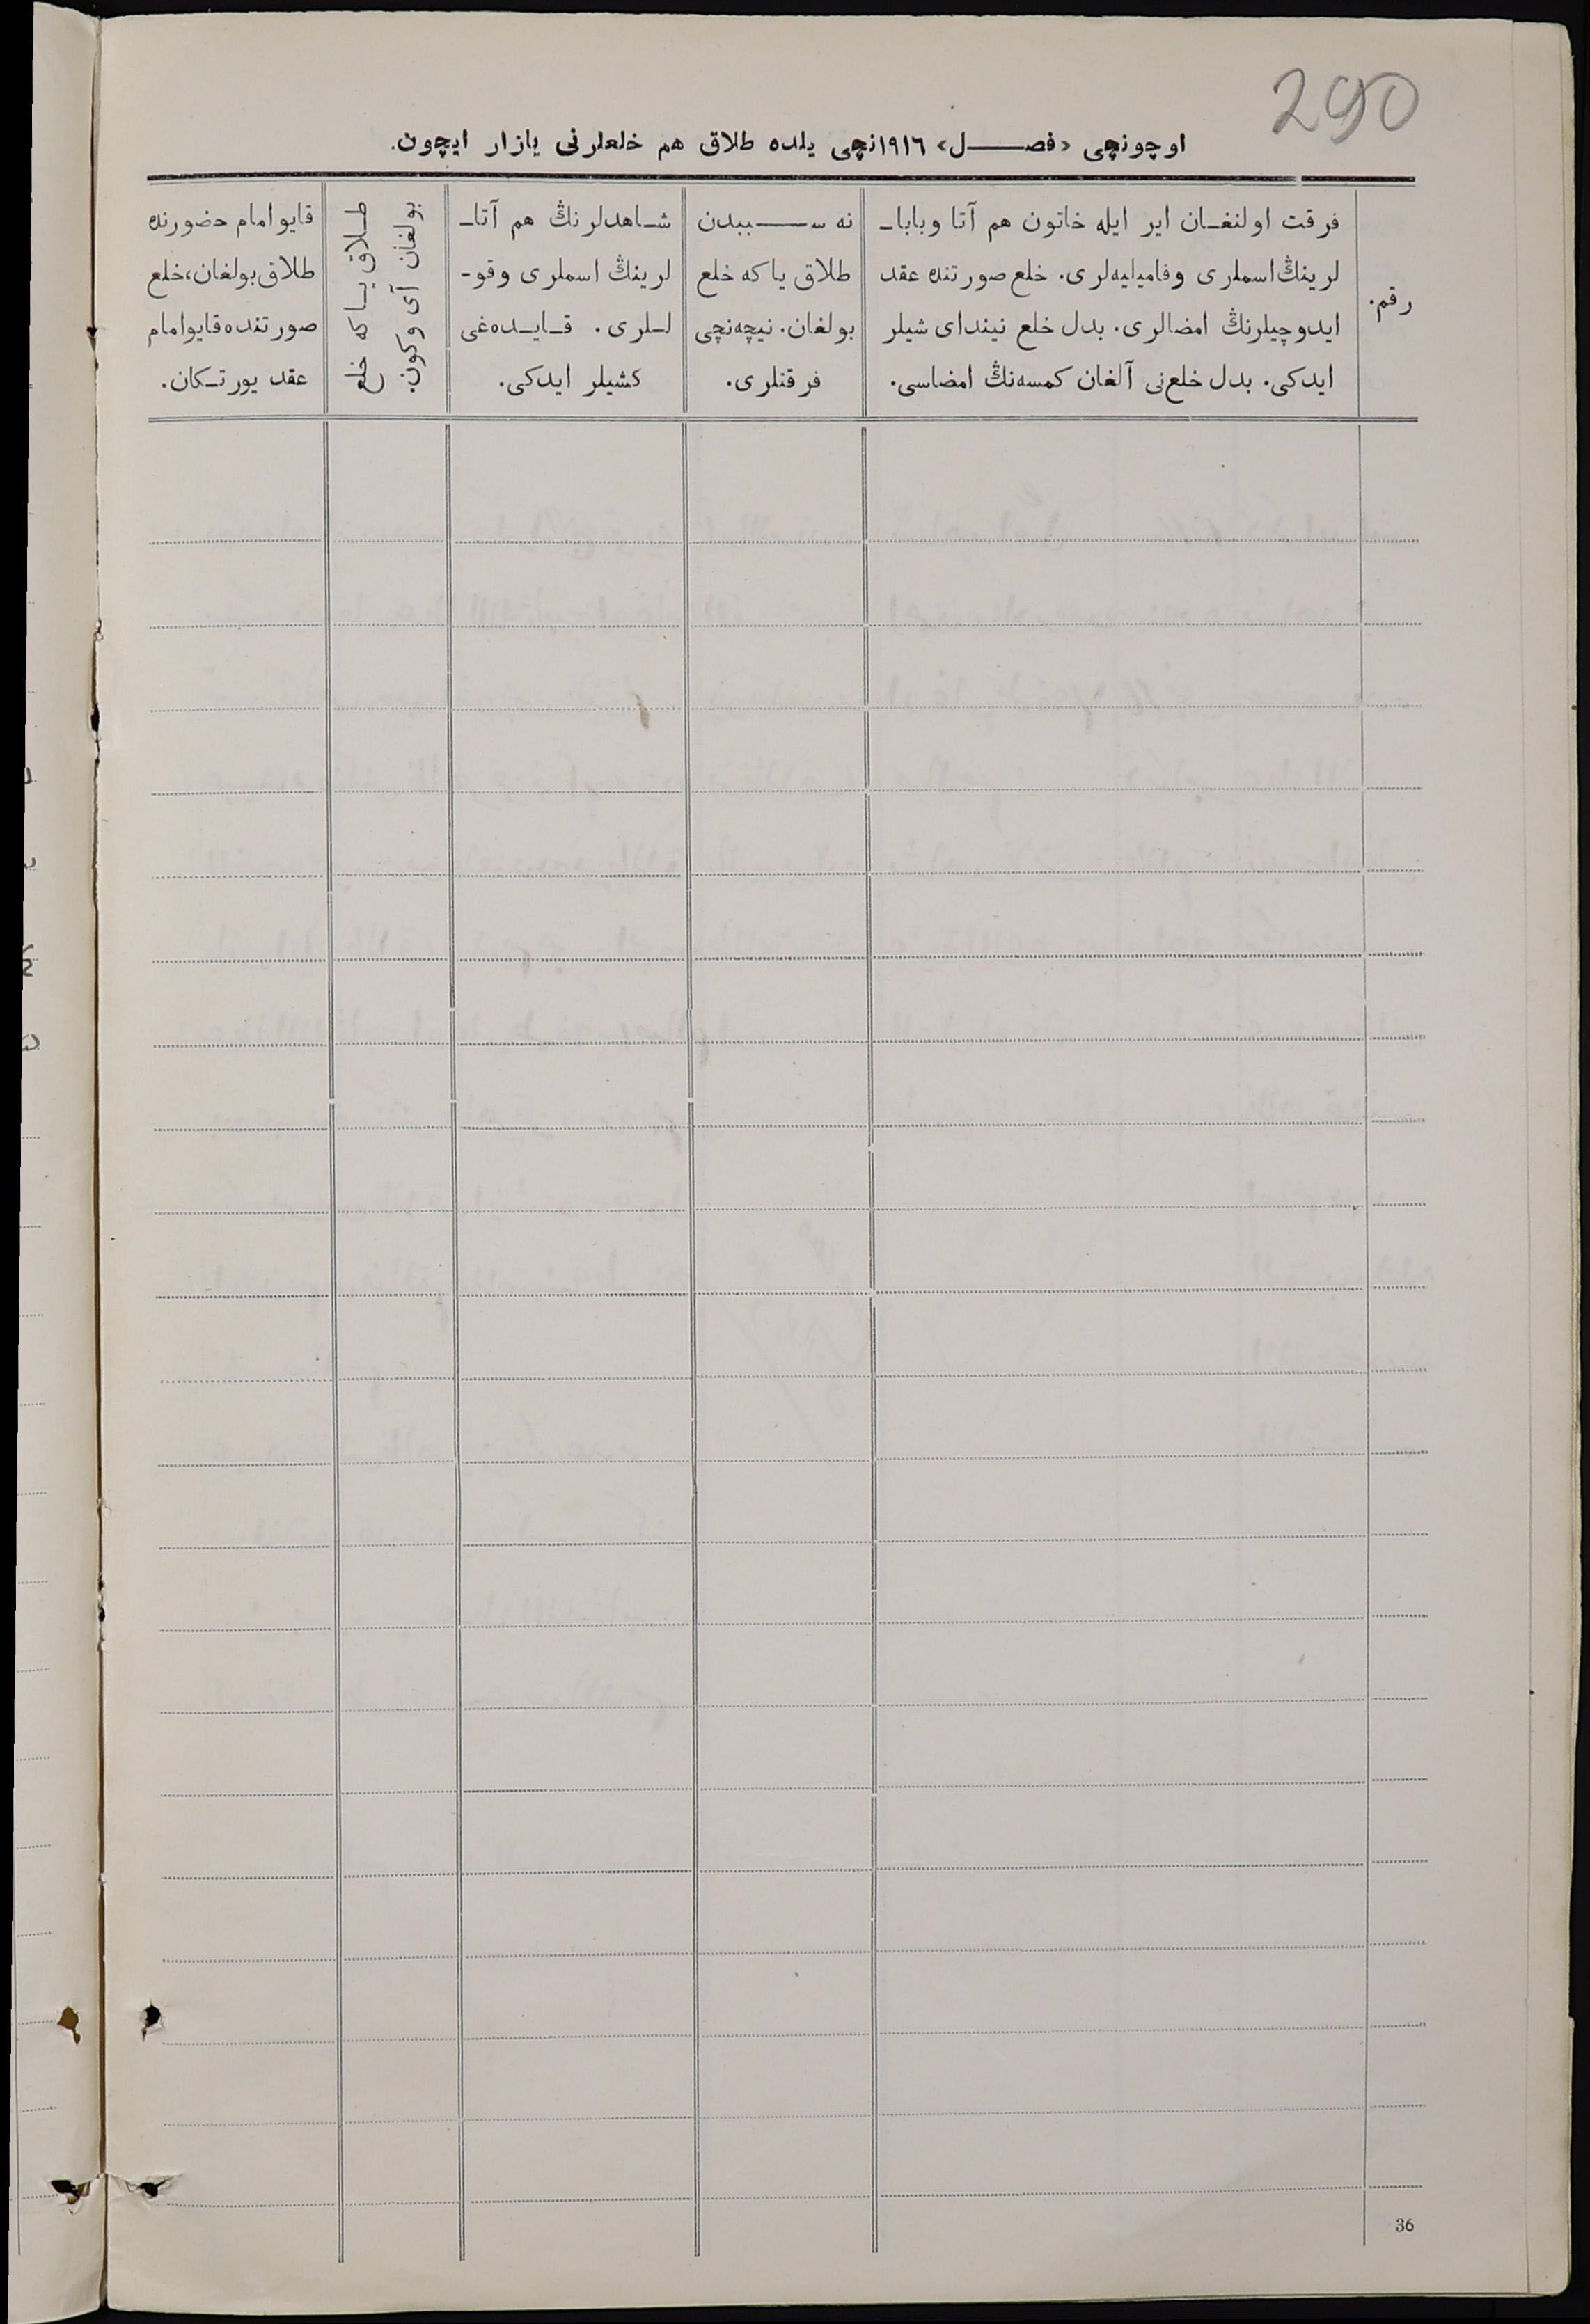 290
اوچونچی «فصل» ١٩١٦نچی یلده طلاق هم خلعلرنی یازار ایچون.
رقم.
فرقت اولنغان ایر ایله خاتون هم آتا وبابا-
لرینڭ اسملری وفامیلیه‌لری. خلع صورتنده عقد
ایدوچیلرنڭ امضالری. بدل خلع نیندای شیلر
ایدکی. بدل خلع‌نی آلغان کمسه‌نڭ امضاسی.
نه سببدن
طلاق یاکه خلع
بولغان. نیچه‌نچی
فرقتلری.
شاهدلرنڭ هم آتا-
لرینڭ اسملری وقو-
للری. قایده‌غی
کشیلر ایدکی.
طلاق یاکه خلع
بولغان آی وکون.
قایو امام حضورنده
طلاق بولغان، خلع
صورتنده قایو امام
عقد یورتکان.
36